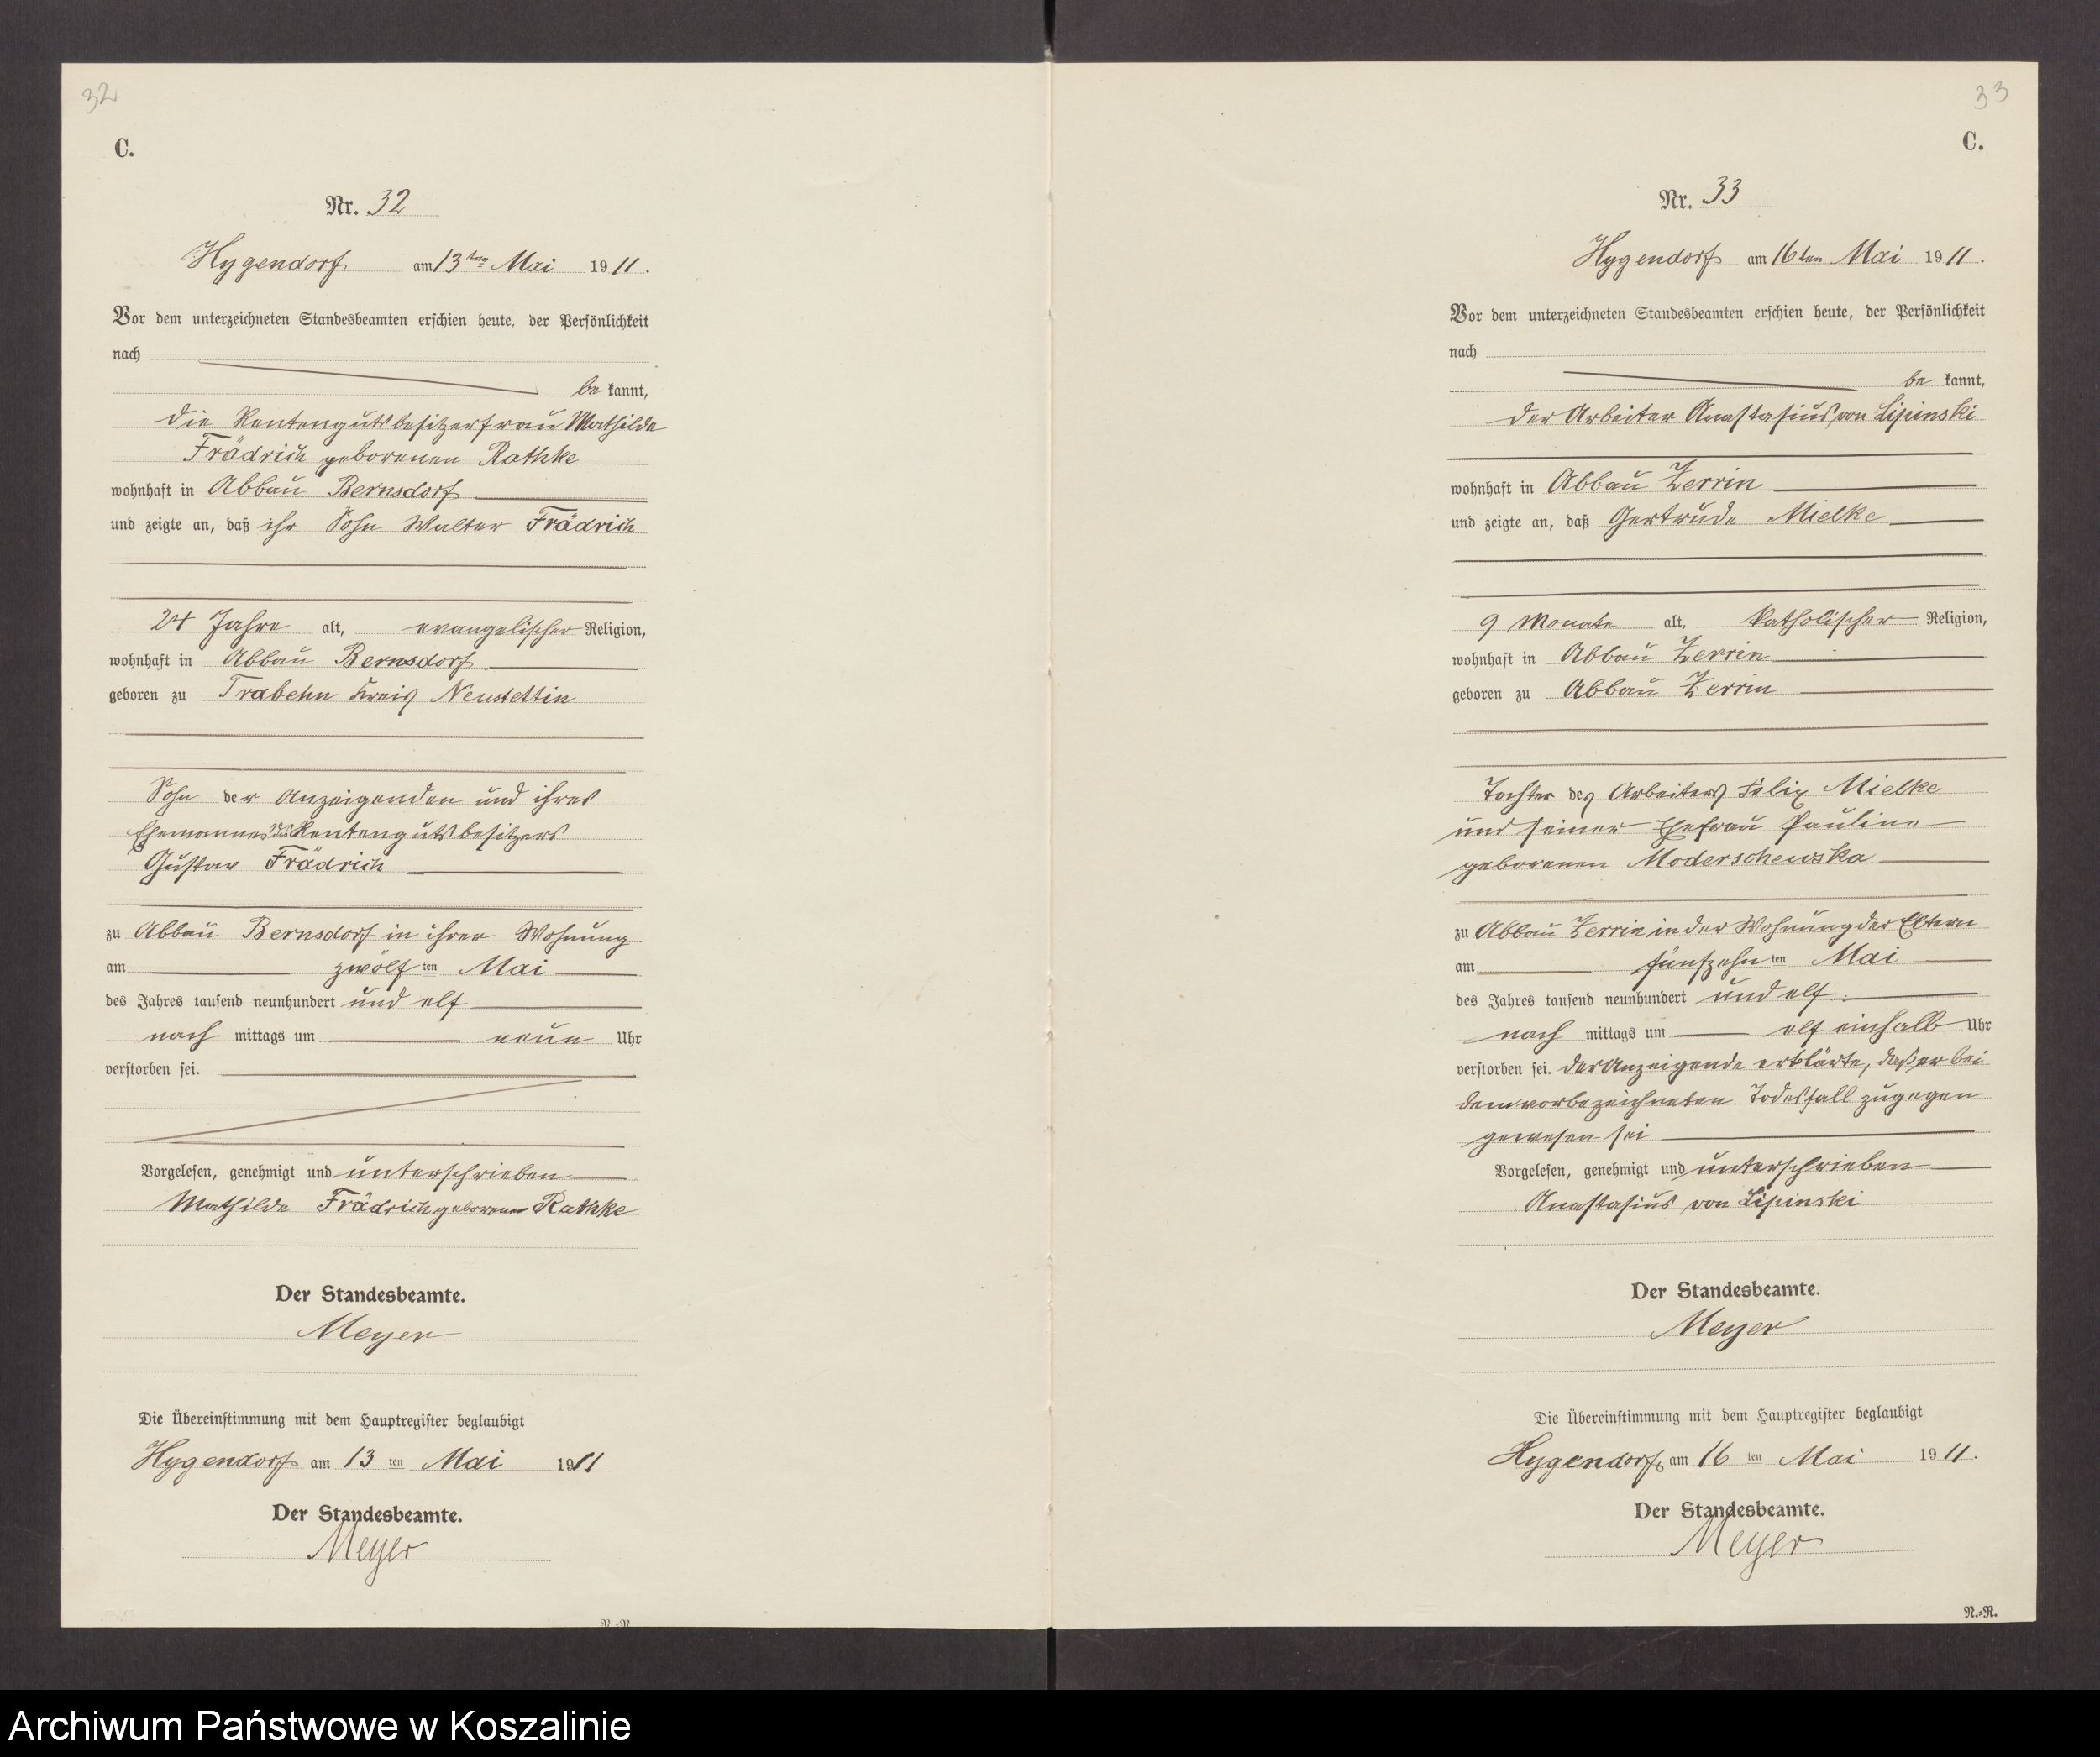 32
C.
Nr. 32
Hygendorf am 13ten Mai 1911.
Vor dem unterzeichneten Standesbeamten erschien heute, der Persönlichkeit
nach
be kannt,
die Rentengutsbesitzerfrau Mathilde
Frädrich geborenen Rathke
wohnhaft in Abbau Bernsdorf
und zeigte an, daß ihr Sohn Walter Frädrich
24 Jahre alt, evangelischer Religion,
wohnhaft in Abbau Bernsdorf
geboren zu Trabehn Kreis Neustettin
Sohn der Anzeigenden und ihres
Ehemannes des Rentengutsbesitzers
Gustav Frädrich
zu Abbau Bernsdorf in ihrer Wohnung
am zwölf ten Mai
des Jahres tausend neunhundert und elf
nach mittags um neun Uhr
verstorben sei.
Vorgelesen, genehmigt und unterschrieben
Mathilde Frädrich geborene Rathke
Der Standesbeamte.
Meyer
Die Übereinstimmung mit dem Hauptregister beglaubigt
Hygendorf am 13 ten Mai 1911
Der Standesbeamte.
Meyer
R.-R.
33
C.
Nr. 33
Hygendorf am 16ten Mai 1911.
Vor dem unterzeichneten Standesbeamten erschien heute, der Persönlichkeit
nach
be kannt,
der Arbeiter Anastasius von Lipinski
wohnhaft in Abbau Zerrin
und zeigte an, daß Gertrude Mielke
9 Monate alt, katholischer Religion,
wohnhaft in Abbau Zerrin
geboren zu Abbau Zerrin
Tochter des Arbeiters Felix Mielke
und seiner Ehefrau Pauline
geborenen Moderschewska
zu Abbau Zerrin in der Wohnung der Eltern
am fünfzehn ten Mai
des Jahres tausend neunhundert und elf
nach mittags um elf einhalb Uhr
verstorben sei. Der Anzeigende erklärte, daß er bei
dem vorbezeichneten Todesfall zugegen
gewesen sei
Vorgelesen, genehmigt und unterschrieben
Anastasius von Lipinski
Der Standesbeamte.
Meyer
Die Übereinstimmung mit dem Hauptregister beglaubigt
Hygendorf, am 16 ten Mai 1911.
Der Standesbeamte.
Meyer
R.-R.
Archiwum Państwowe w Koszalinie